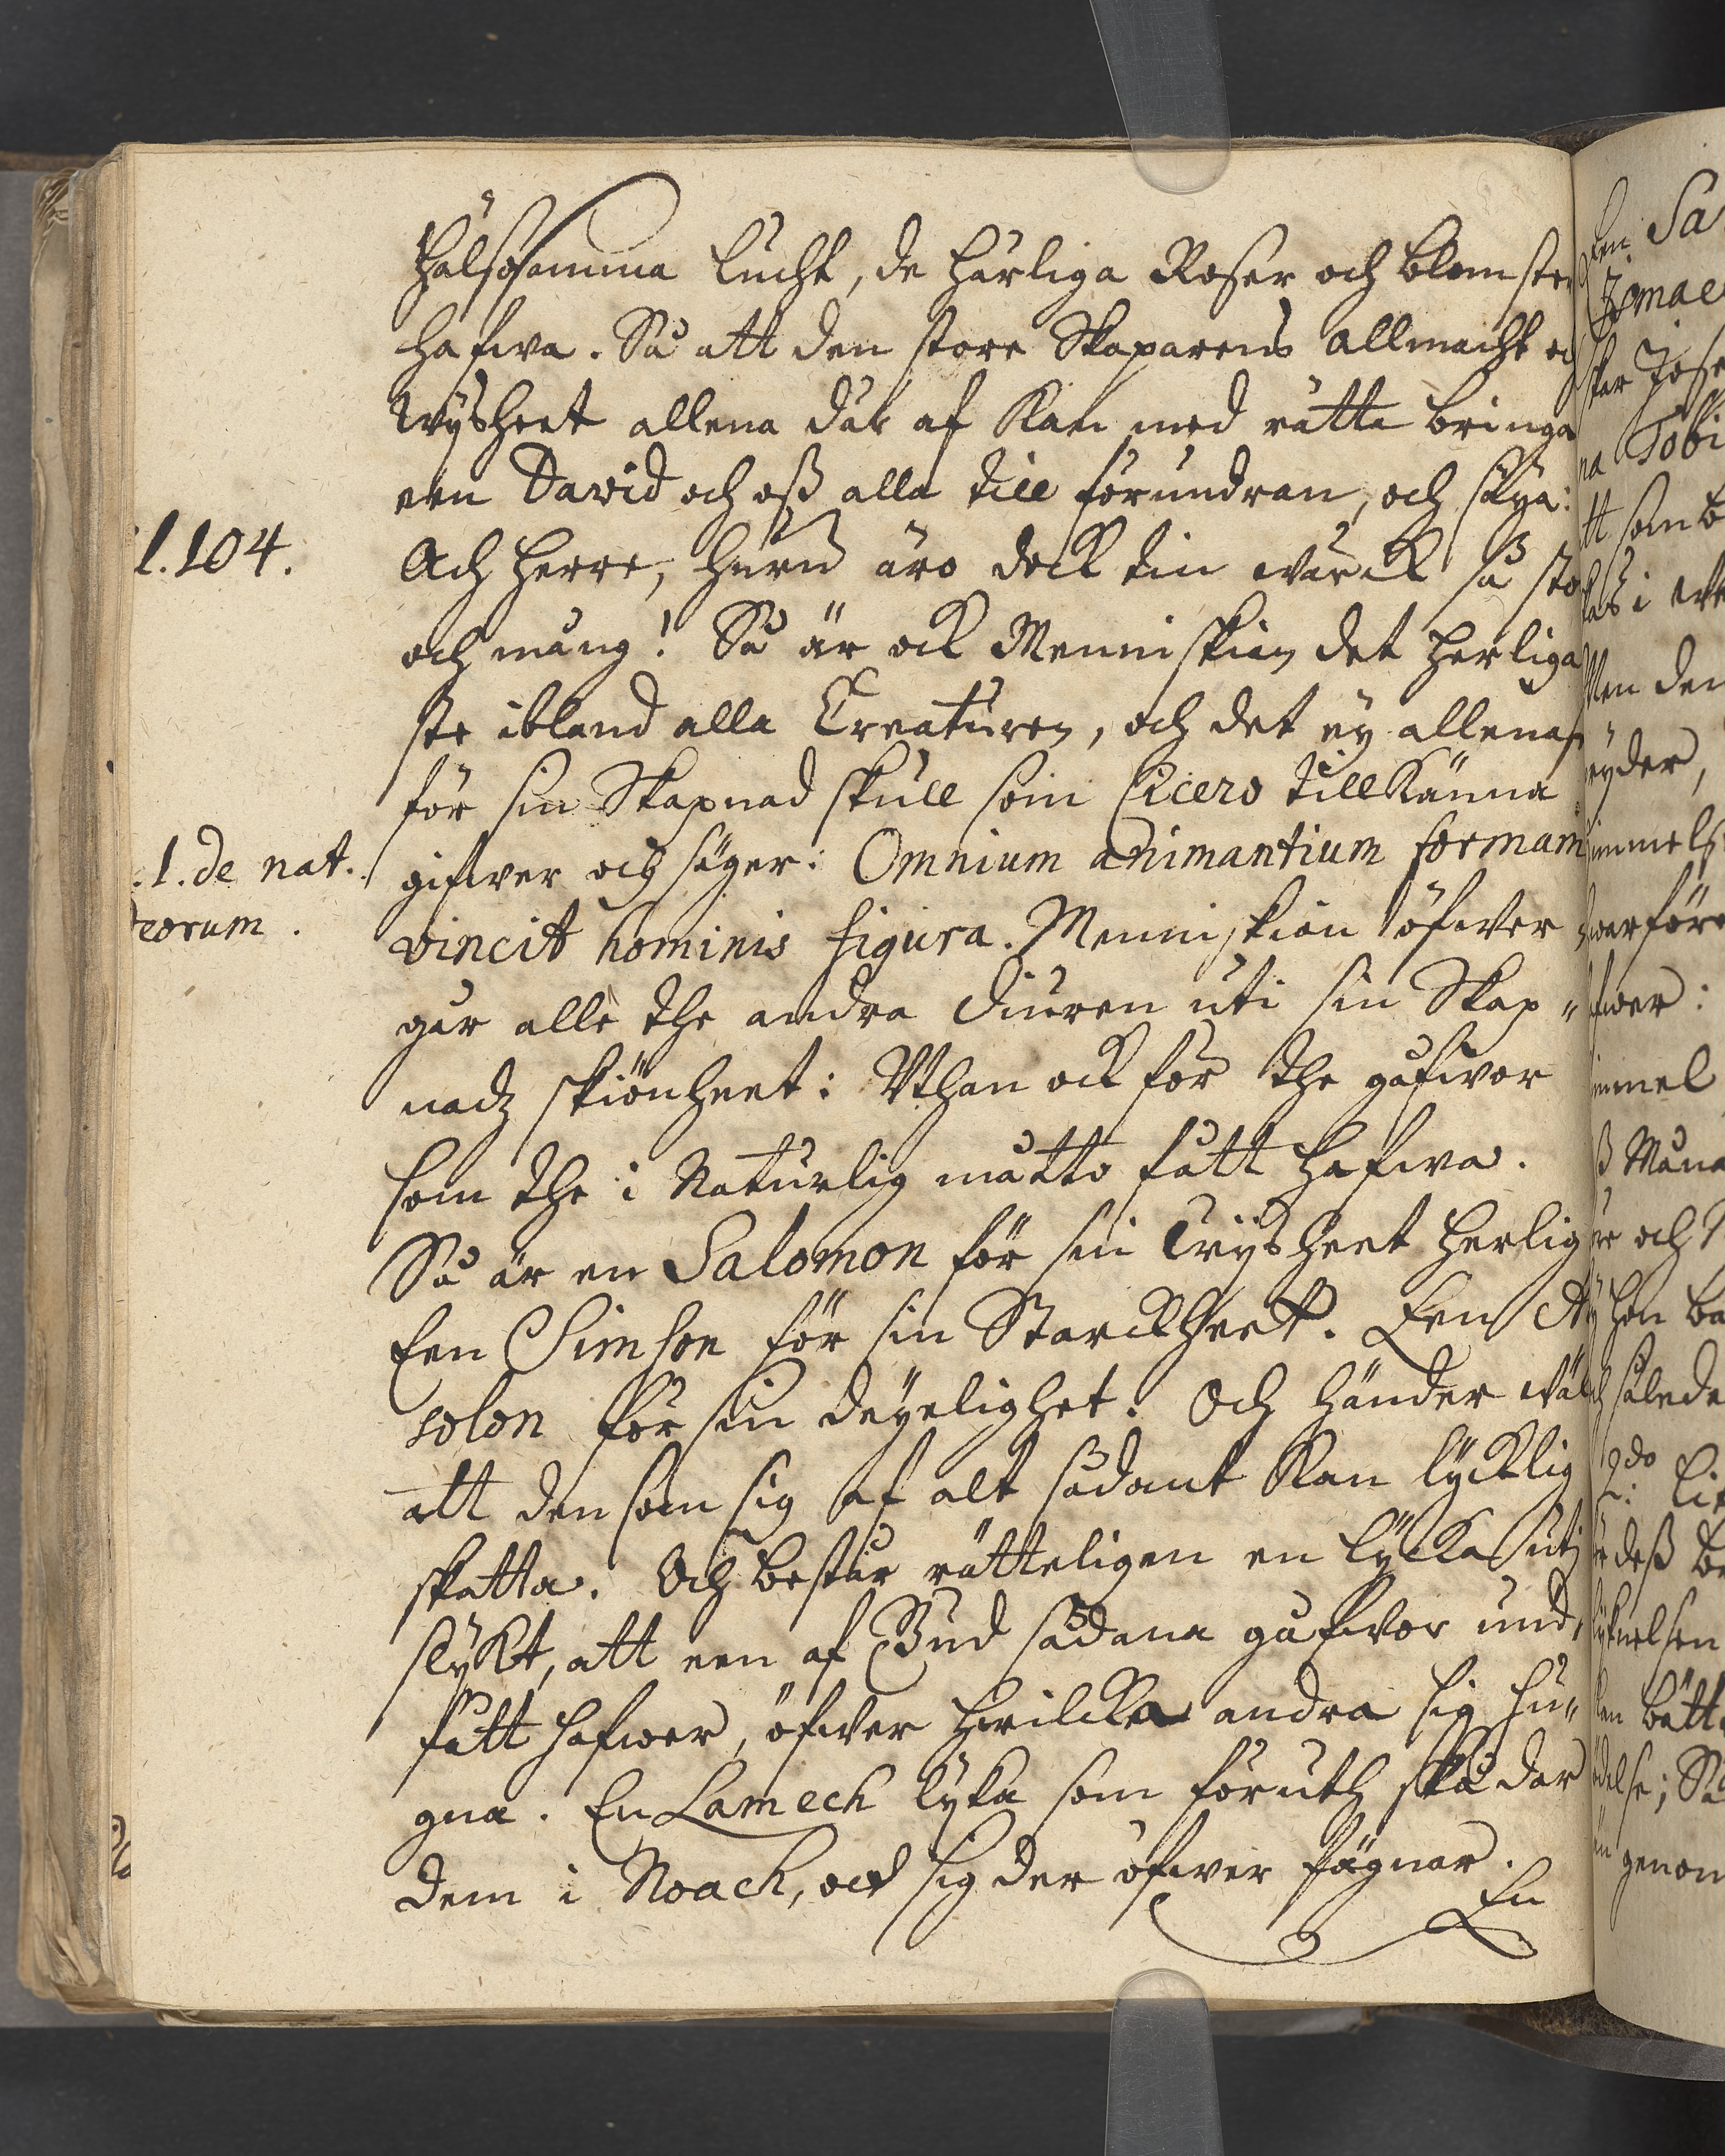 hälsosamma lucht, de härliga Roser och blomster
hafwa. Så att den store Skaparens allmacht och
wysheet allena där af kan med rätta bringa
een David och oß alla till förundran, och säya:
l. 104.
Ach herre, huru äro dock tin wärck så sto
och mång! Så är ock Menniskian det herliga
ste ibland alla Creaturen, och det ey allenast
för sin Skapnad skull som Cicero tillkänna
l. de nat.
eorum.
gifwer och säger: Omnium animantium formam
vincit hominis figura. Menniskian öfwer
går alle the andra diuren uti sin Skap„
nadz skiönheet: Uthan ock för the gåfwor
som the i Naturlig måtto fått hafwa.
Så är en Salomon för sin wysheet herlig
Een Simson för sin Starckheet. Een A
solon för sin deyelighet. Och händer wäl
att den som sig af alt sådant kan lycklig
skatta. Och består rätteligen en lycka utj
slykt, att een af Gud sådana gåfwor und„
fått hafwer, öfwer hwilcka andra sig hu„
gna. En Lamech lyka som föruth skådar
dem i Noach, och sig der öfwer fägnar.
En